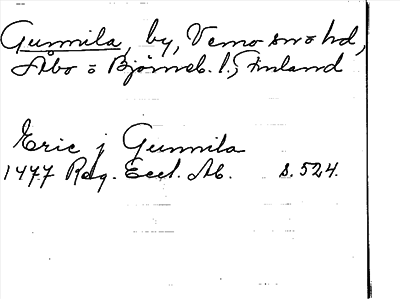 Gunnila, by, Vemo sn o hd,
Åbo o Björneb. l., Finland
Eric j Gunnila
1477 Reg. Eccl. Ab. s. 524.